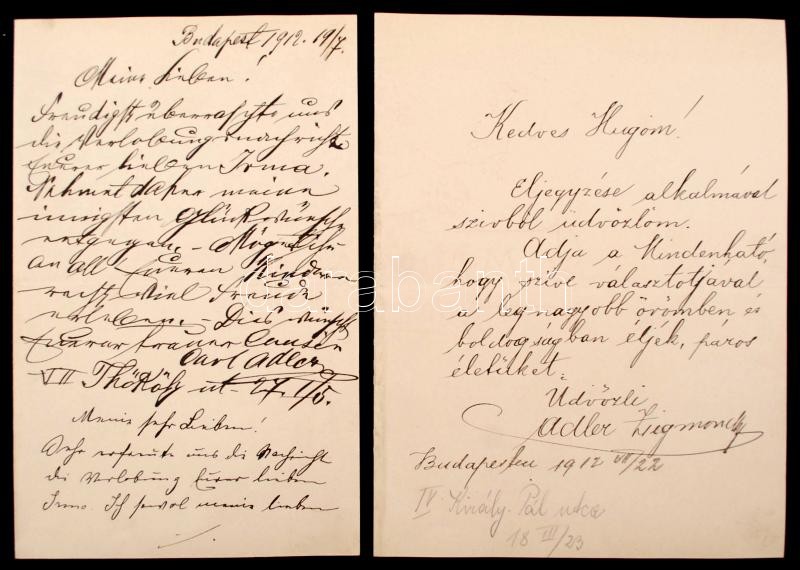 Budapest 1912. 19/7.
Meine Lieben!
Freudigst überraschte uns
die Verlobungsnachricht
Euerer lieben Irma.
Nehmet daher meine
innigsten Glückwünsche
entgegen. – Möget Ihr
an all Eueren Kindern
recht viel Freude
erleben. – Dies wünscht
Euerer treuer Cousin
Carl Adler
VII Thököly út 27. I/5.
Meine sehr Lieben!
Sehr erfreute uns die Nachricht
die Verlobung Eurer lieben
Irma. Ich sowol meine lieben
Kedves Hugom!
Eljegyzése alkalmával
szivből üdvözlöm.
Adja a Mindenható,
hogy szive választotjával
a leg nagyobb örömben és
boldogságban éljék, páros
életüket.
Üdvözli
Adler Zsigmond
Budapesten 1912 VII/22
IV. Király Pál utca
18 III/23
darabanth